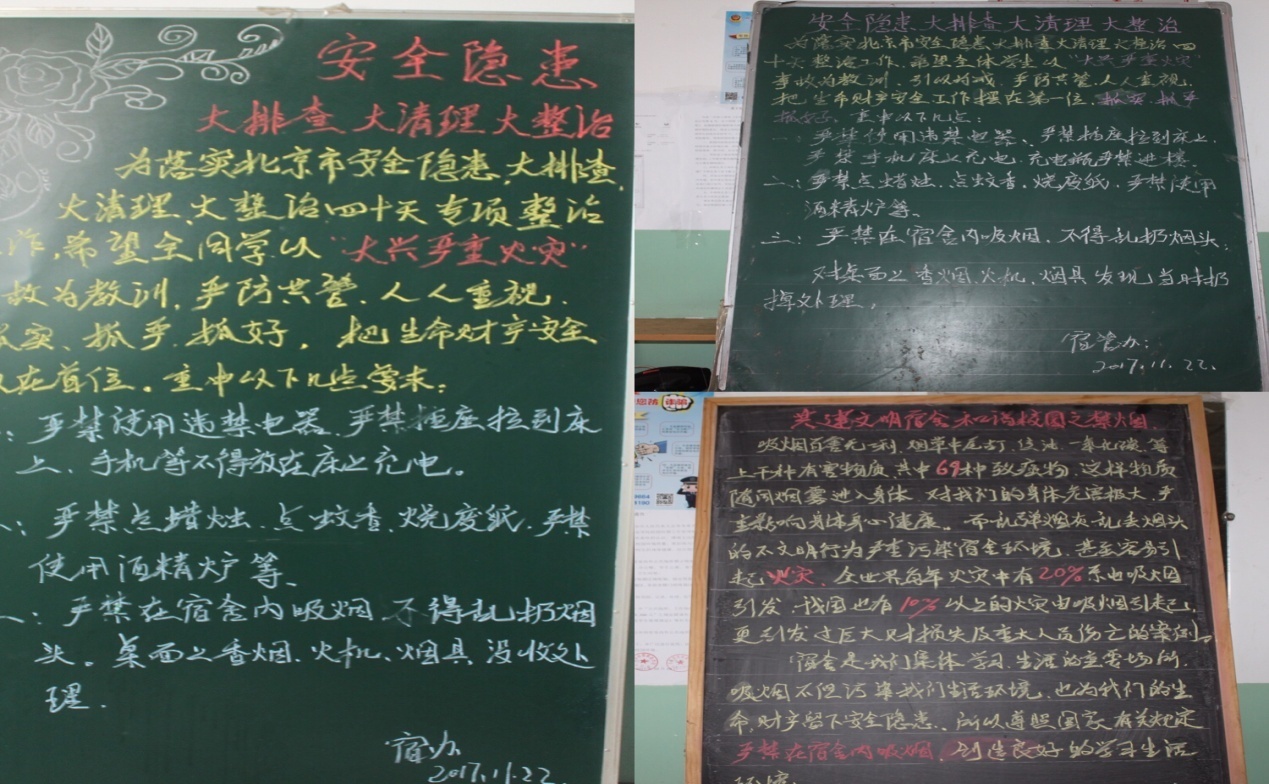 安全隐患
大排查大清理大整治
为落实北京市安全隐患,大排查,
大清理、大整治四十天专项整治
作,希望全同学以"大兴严重火灾"
故为教训,严防共管、人人重视、
实、抓严、抓好,把生命财产安全
在首位。重申以下几点要求:
:严禁使用违禁电器、严禁插座拉到床
上、手机等不得放在床上充电。
:严禁点蜡烛、点蚊香、烧废纸、严禁
使用酒精炉等、
:严禁在宿舍内吸烟、不得乱扔烟
头。桌面上香烟、火机、烟具没收处
理.
宿办
2017.11.22
安全隐患大排查大清理大整治
为落实北京市安全隐患、大排查大清理大整治四
十天整治工作、希望全体学生以"大兴严重火灾"
事故为教训、引以为戒、严防共管、人人重视、
把生命财产安全工作摆在第一位、抓实、抓严
抓好、重申以下几点:
一:严禁使用违禁电器、严禁插座拉到床上、
严禁手机床上充电、充电瓶严禁进楼
二:严禁点蜡烛、点蚊香、烧废纸、严禁使用
酒精炉等、
三:严禁在宿舍内吸烟、不得乱扔烟头;
对桌面上香烟、火机、烟具发现当时扔
掉处理,
宿管办:
2017.11.22.
共建文明宿舍和谐校园之禁烟
吸烟百害无一利、烟草中尼古丁、焦油、一氧化碳等
上千种有害物质、其中69种致癌物、这样物质
随同烟雾进入身体、对我们的身体危害极大、严
重影响身体身心健康。而乱弹烟灰乱丢烟头
的不文明行为严重污染宿舍环境、甚至容易引
起火灾、全世界每年火灾中有20%系由吸烟
引发、我国也有10%以上的火灾由吸烟引起,
更引发过巨大财损失及重大人员伤亡的案例。
宿舍是我们集体学习、生活的主要场所、
吸烟不但污染我们生活环境、也为我们的生
命、财产留下安全隐患、所以遵照国家有关规定
严禁在宿舍内吸烟、创造良好的学习生活
环境.